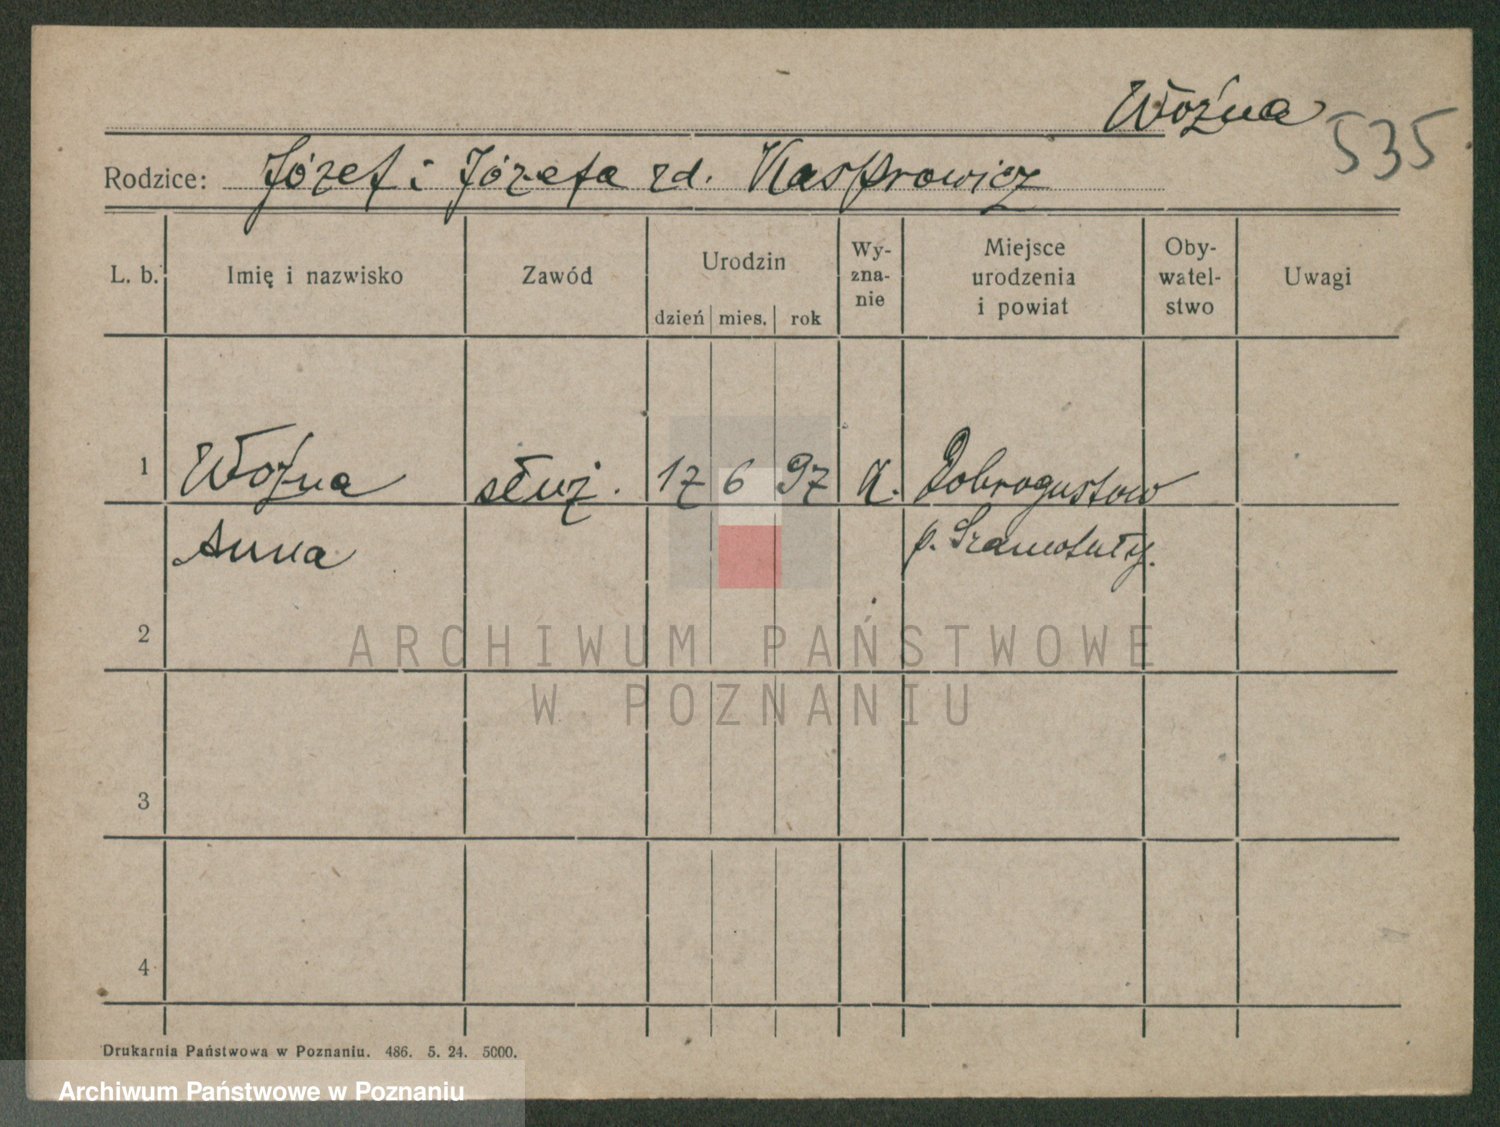 Woźna
535
Rodzice: Józef i Józefa zd. Kasprowicz
L. b. Imię i nazwisko Zawód Urodzin Wy-
zna-
nie Miejsce
urodzenia
i powiat Oby-
watel-
stwo Uwagi
dzień mies. rok
1 Woźna służ. 17 6 97 K. Dobrogustowo
Anna p. Szamotuły.
2
ARCHIWUM PAŃSTWOWE
W POZNANIU
3
4
Drukarnia Państwowa w Poznaniu. 486. 5. 24. 5000.
Archiwum Państwowe w Poznaniu